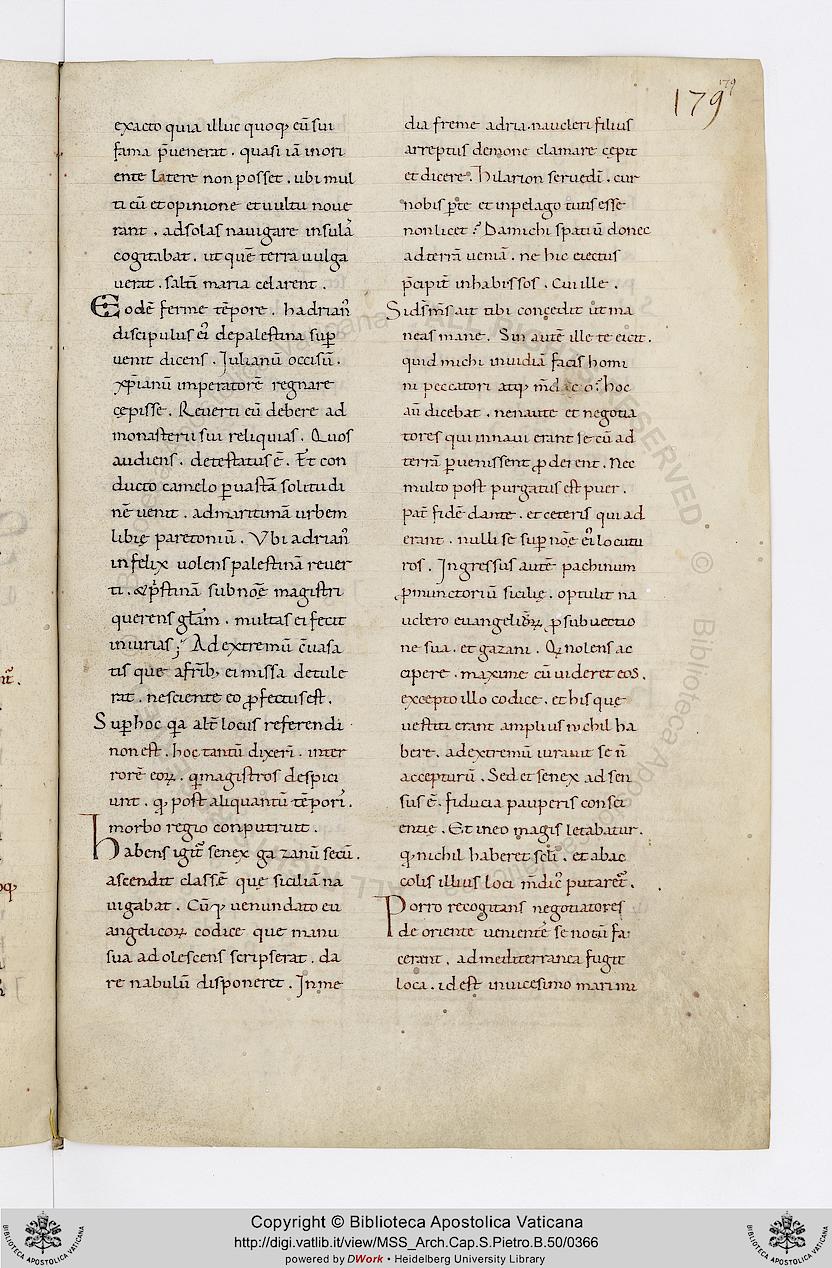 179
179
exacto quia illuc quoq; cū sui
fama p̄uenerat . quasi iā in ori
ente latere non posset . ubi mul
ti eū et opinione et uultu noue
rant . ad solas nauigare insulā
cogitabat . ut quē terra uulga
uerat . saltī maria celarent .
Eodē ferme tēpore . hadrian᾽
discipulus ei᾽ de palestina sup̄
uenit dicens . Iulianū occisū .
xp̄ianū imperatorē regnare
cępisse . Reuerti eū debere ad
monasterii sui reliquias . Quos
audiens . detestatus ē . Et con
ducto camelo p̱ uastā solitudi
nē uenit . ad maritimā urbem
libię paretoniū . Vbi adrian᾽
infelix uolens palestinā reuer
ti . & p̄stinā sub noē magistri
querens gl̄am . multas ei fecit
iniurias ; Ad extremū c̄uasa
tis que a fr̄ib; ei missa detule
rat . nesciente eo ꝓfectus est .
Sup̄ hoc q̄a alt̄ locus referendi
non est . hoc tantū dixeri᾽ . in ter
rorē eoꝝ . qi᾽ magistros despici
unt . qđ post aliquantū tēpori᾽ .
morbo regio conputruit .
Habens igit᾽ senex gazanū secū .
ascendit classē quę siciliā na
uigabat . Cūq; uenundato eu
angelicoꝝ codice que manu
sua adolescens scripserat . da
re nabulū disponeret . In me
dia freme adria . naucleri filius
arreptus demone clamare cępit
et dicere . hilarion serue dī . cur
nobis p̱ te et in pelago tutis esse
non licet ? Da michi spatiū donec
ad terrā ueniā . ne hic eiectus
p̄cipit᾽ in habissos . Cui ille .
Si ds̄ ms̄ ait tibi concedit ut ma
neas mane . Sin autē ille te eicit .
quid michi inuidiā facis homi
ni peccatori atq; mdico ? hoc
aū dicebat . ne naute et negotia
tores qui in naui erant se cū ad
terrā p̱uenissent ꝓderent . Nec
multo post purgatus est puer .
pat᾽ fidē dante . et ceteris qui ad
erant . nulli se sup̄ noē ei᾽ locutu
ros . Ingressus autē pachinum
ꝓmunctoriū sicilię . optulit na
uclero euangeliū ꝓ subuectio
ne sua . et gazani . Qi nolens ac
cipere . maxime cū uideret eos .
excepto illo codice . et his que
uestiti erant amplius nichil ha
bere . ad extremū iurauit se n̄
accepturū . Sed et senex ad sen
sus ē . fiducia pauperis consci
entię . Et in eo magis letabatur .
qđ nichil haberet scl̄i . et ab ac
colis illius loci m̄dic᾽ putaret᾽ .
Porro recogitans negotiatores
de oriente uenientē se notū fa
cerent . ad mediterranea fugit
loca . id est in uicesimo mar mi
Copyright © Biblioteca Apostolica Vaticana
http://digi.vatlib.it/view/MSS_Arch.Cap.S.Pietro.B.50/0366
powered by DWork • Heidelberg University Library